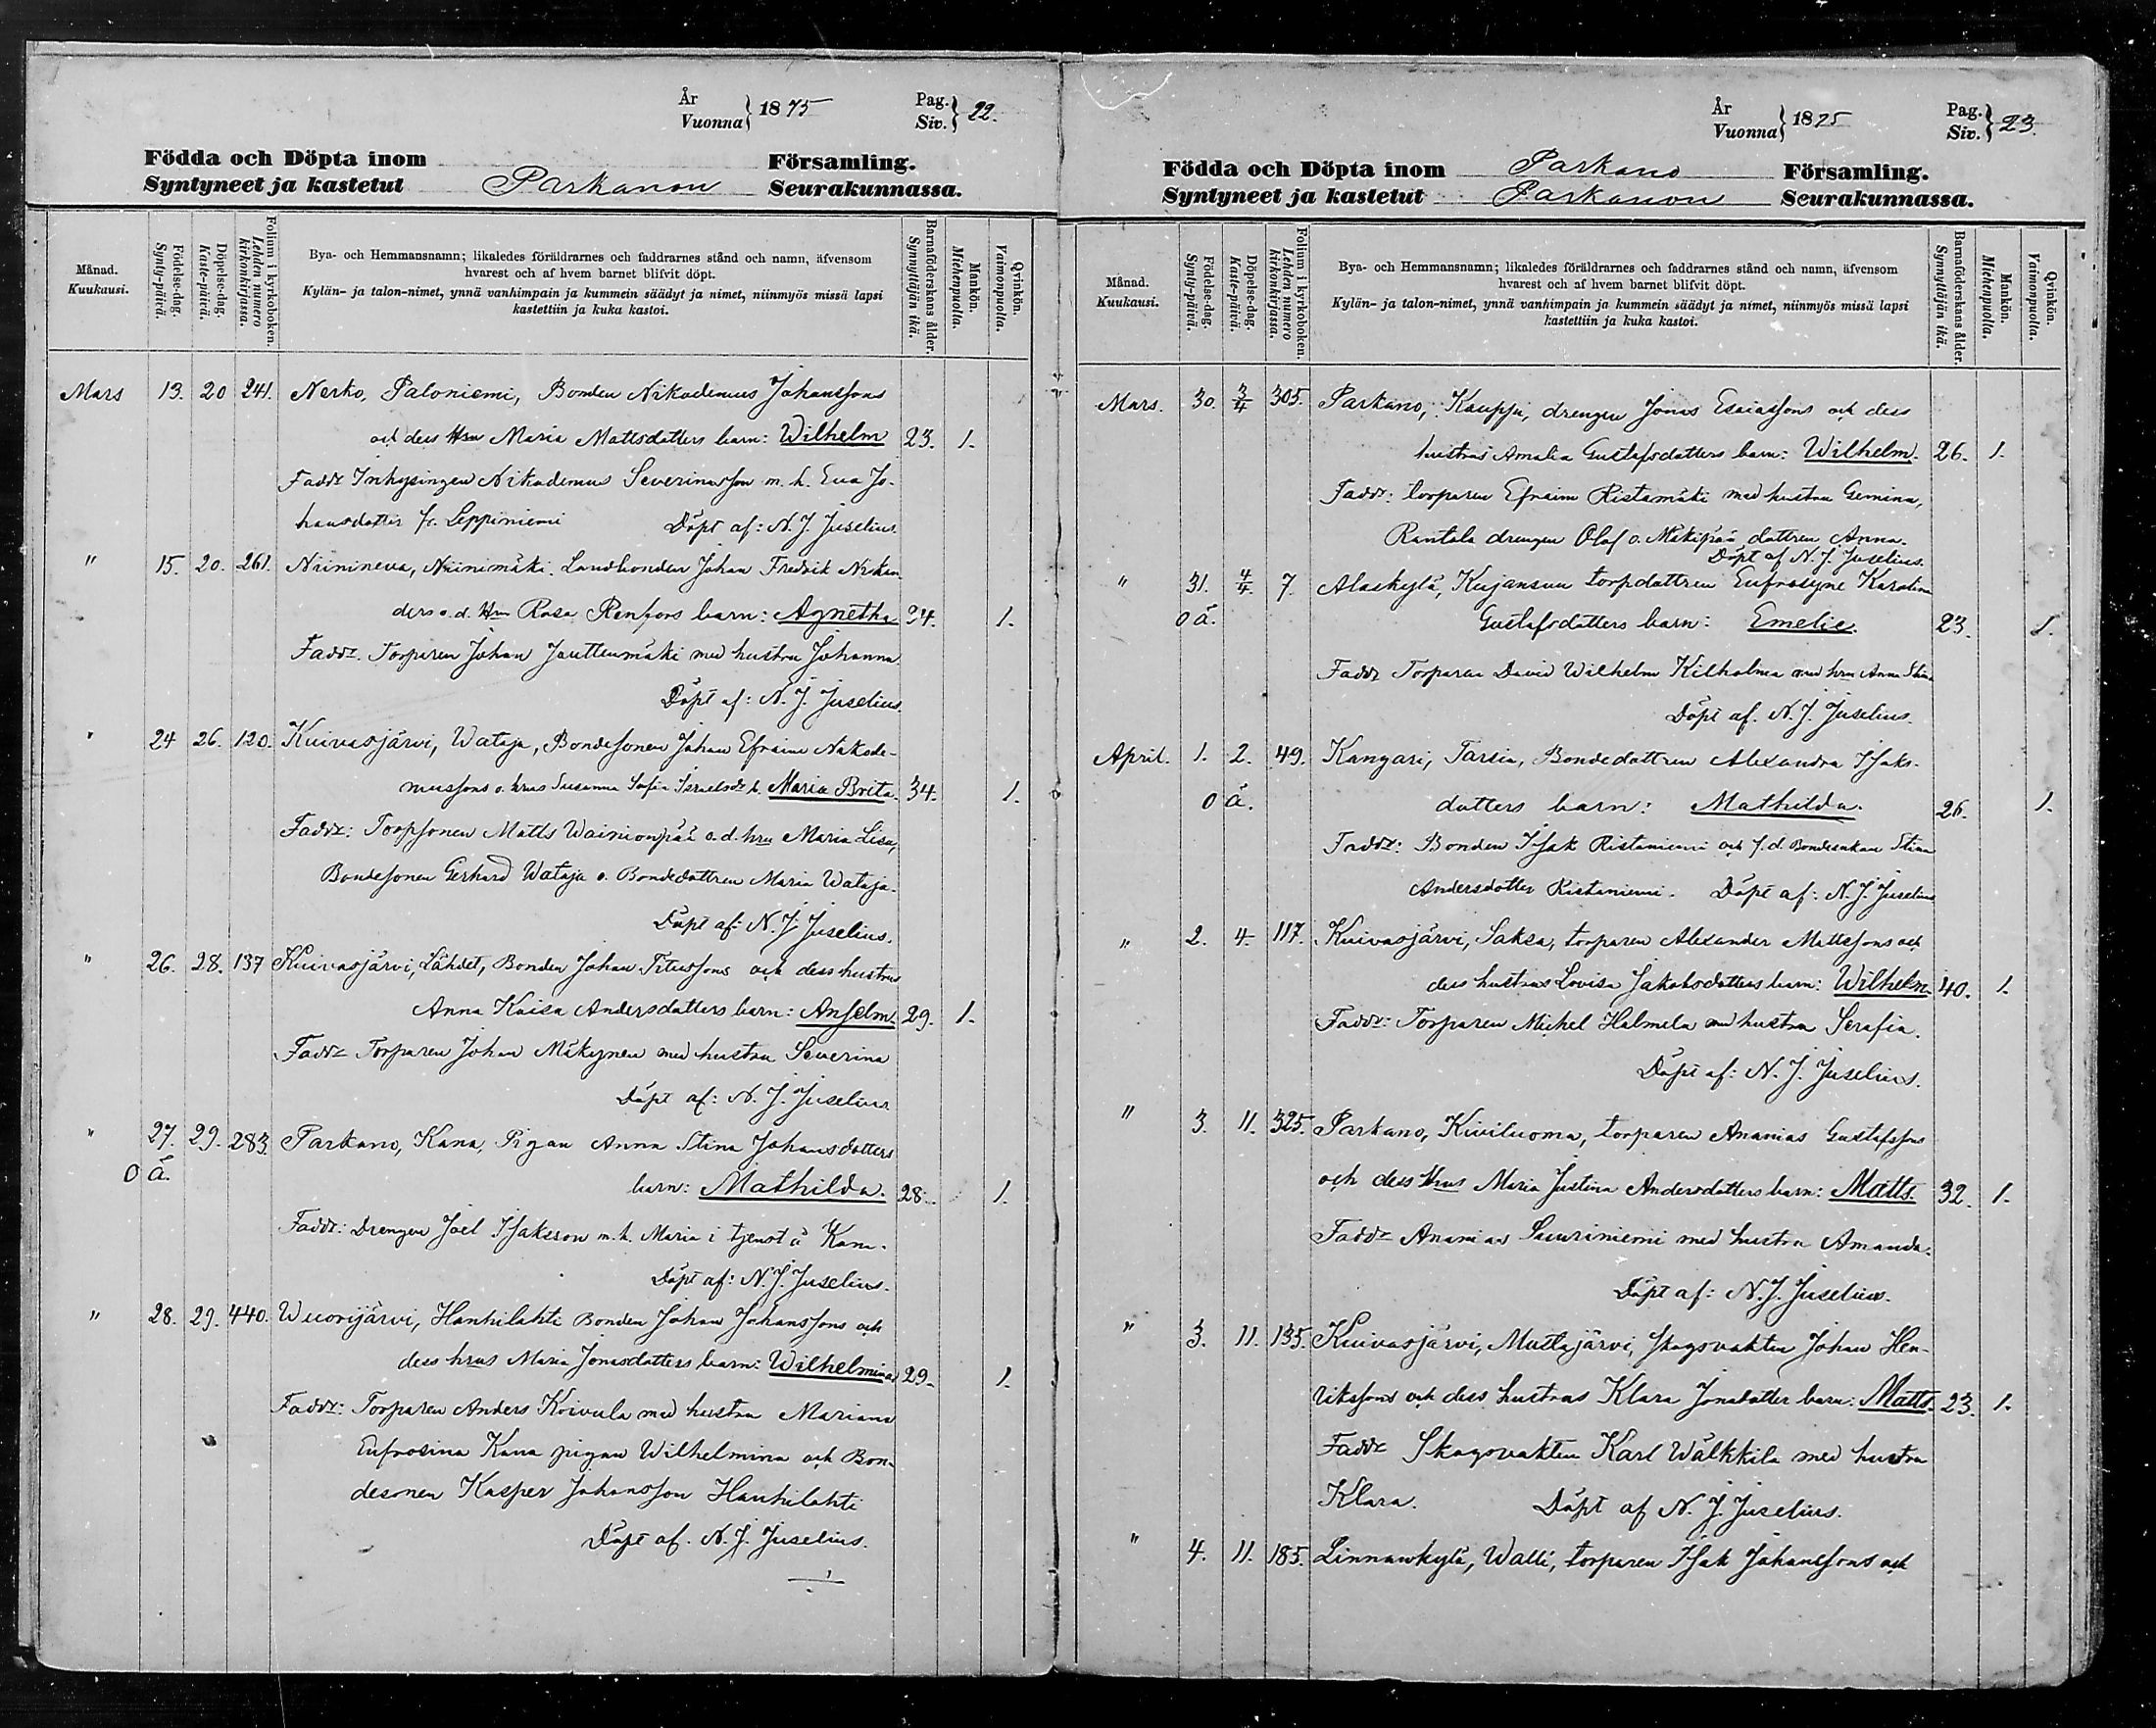 År
Vuonna } 1875
Pag.
Siv. } 22.
Födda och Döpta inom Församling.
Syntyneet ja kastetut Parkanon Seurakunnassa.
Månad.
Kuukausi.
Födelse-dag.
Synty-päivä.
Döpelse-dag.
Kaste-päivä.
Folium i kyrkoboken.
Lehden numero
kirkonkirjassa.
Bya- och Hemmansnamn; likaledes föräldrarnes och faddrarnes stånd och namn, äfvensom
hvarest och af hvem barnet blifvit döpt.
Kylän- ja talon-nimet, ynnä vanhimpain ja kummein säädyt ja nimet, niinmyös missä lapsi
kastettiin ja kuka kastoi.
Barnaföderskans ålder.
Synnyttäjän ikä.
Mankön.
Miehenpuolta.
Qvinkön.
Vaimonpuolta.
Mars 13. 20 241. Nerko, Paloniemi, Bonden Nikodemus Johanssons
och dess Hru Maria Mattsdotters barn: Wilhelm 23. 1.
Faddr Inhysingen Nikodemus Severinusson m. h. Eva Jo-
hansdotter fr. Leppiniemi Döpt af: N. J. Juselius.
" 15. 20. 261. Niinineva, Niinimäki. Landbonden Johan Fredrik Nikan
ders o. d. Hru Rosa Renfors barn: Agnetha 24. 1.
Faddr. Torparen Johan Jouttenmäki med hustru Johanna
Döpt af: N. J. Juselius.
" 24 26. 120. Kuivasjärvi, Wataja, Bondesonen Johan Efraim Nikode-
mussons o. hrus Susanna Sofia Israelsdr b. Maria Brita. 34. 1.
Faddr: Torpsonen Matts Wainionpää o. d. hru Maria Lisa,
Bondesonen Gerhard Wataja o. Bondedottren Maria Wataja.
Döpt af: N. J. Juselius.
" 26. 28. 137 Kuivasjärvi, Lähdet, Bonden Johan Titussons och dess hustrus
Anna Kaisa Andersdotters barn: Anselm. 29. 1.
Faddr Torparen Johan Mäkynen med hustru Severina
Döpt af: N. J. Juselius
" 27. 29. 283. Parkano, Kana, Pigan Anna Stina Johansdotters
o ä. barn: Mathilda. 28. 1.
Faddr: Drengen Joel Isaksson m. h. Maria i tjenst å Kana.
Döpt af: N. J. Juselius.
" 28. 29. 440. Wuorijärvi, Hanhilahti Bonden Johan Johanssons och
dess hrus Maria Jonasdotters barn: Wilhelmina 29. 1.
Faddr: Torparen Anders Koivula med hustru Mariana
Eufrosina Kana pigan Wilhelmina och Bon-
desonen Kasper Johansson Hanhilahti
Döpt af. N. J. Juselius.
År
Vuonna } 1875
Pag.
Siv. } 23.
Födda och Döpta inom Parkano Församling.
Syntyneet ja kastetut Parkanon Seurakunnassa.
Månad.
Kuukausi.
Födelse-dag.
Synty-päivä.
Döpelse-dag.
Kaste-päivä.
Folium i kyrkoboken.
Lehden numero
kirkonkirjassa.
Bya- och Hemmansnamn; likaledes föräldrarnes och faddrarnes stånd och namn, äfvensom
hvarest och af hvem barnet blifvit döpt.
Kylän- ja talon-nimet, ynnä vanhimpain ja kummein säädyt ja nimet, niinmyös missä lapsi
kastettiin ja kuka kastoi.
Barnaföderskans ålder.
Synnyttäjän ikä.
Mankön.
Miehenpuolta.
Qvinkön.
Vaimonpuolta.
Mars. 30. 3/4 305. Parkano, Kauppi, drengen Jonas Esaiassons och dess
hustrus Amalia Gustafsdotters barn: Wilhelm. 26. 1.
Faddr: torparen Efraim Ristamäki med hustru Gemina,
Rantala drengen Olof o. Mäkipää dottren Anna.
Döpt af N. J. Juselius.
" 31. 4/4. 7. Alaskylä, Kujansuu torpdottren Eufrosyne Karolina
o ä. Gustafsdotters barn: Emelie. 23. 1.
Faddr Torparen David Wilhelm Kilholma med hru Anna Stina
Döpt af. N. J. Juselius.
April. 1. 2. 49. Kangari, Tarsia, Bondedottren Alexandra Isaks-
o ä. dotters barn: Mathilda. 26. 1.
Faddr: Bonden Isak Ristaniemi och f. d. Bondeenkan Stina
Andersdotter Ristaniemi. Döpt af: N. J. Juselius
" 2. 4. 117. Kuivasjärvi, Saksa, torparen Alexander Mattssons och
dess hustrus Lovisa Jakobsdotters barn: Wilhelm. 40. 1.
Faddr: Torparen Michel Halmela med hustru Serafia.
Döpt af: N. J. Juselius.
" 3. 11. 325. Parkano, Kiviluoma, torparen Ananias Gustafssons
och dess Hrus Maria Justina Andersdotters barn: Matts. 32. 1.
Faddr Ananias Sauriniemi med hustru Amanda.
Döpt af: N. J. Juselius.
" 3. 11. 135. Kuivasjärvi, Mustajärvi, Skogsvakten Johan Hen-
rikssons och dess hustrus Klara Jonadotter barn: Matts. 23. 1.
Faddr Skogsvakten Karl Wälkkilä med hustru
Klara. Döpt af N. J. Juselius.
" 4. 11. 185. Linnankylä, Walli, torparen Isak Johanssons och